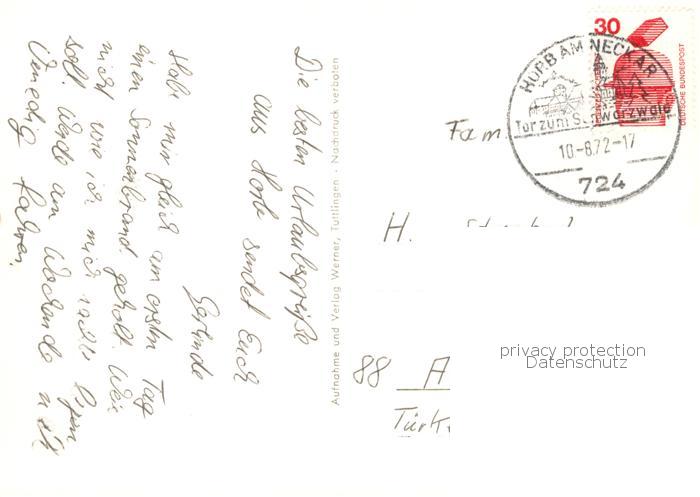 Die besten Urlaubsgrüße
aus Horb sendet Euch
Gerlinde
Habe mir gleich am ersten Tag
einen Sonnenbrand geholt. Weis
nicht wie ich mich nachts legen
soll. Werde am Wochende n.
Venedig fahren.
Aufnahme und Verlag Werner, Tuttlingen - Nachdruck verboten
30
DEUTSCHE BUNDESPOST
HORB AM NECKAR
Tor zum Schwarzwald
10-8.72-17
724
Fam.
H.
88 A
Türk
privacy protection
Datenschutz